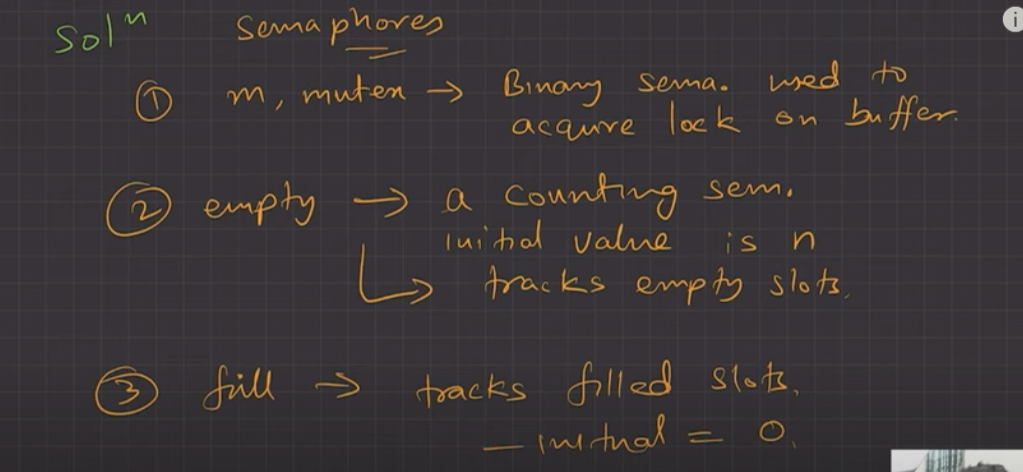 Solⁿ Semaphores
① m, mutex → Binary sema. used to
acquire lock on buffer.
② empty → a counting sem.
initial value is n
↳ tracks empty slots.
③ full → tracks filled slots.
— initial = 0.